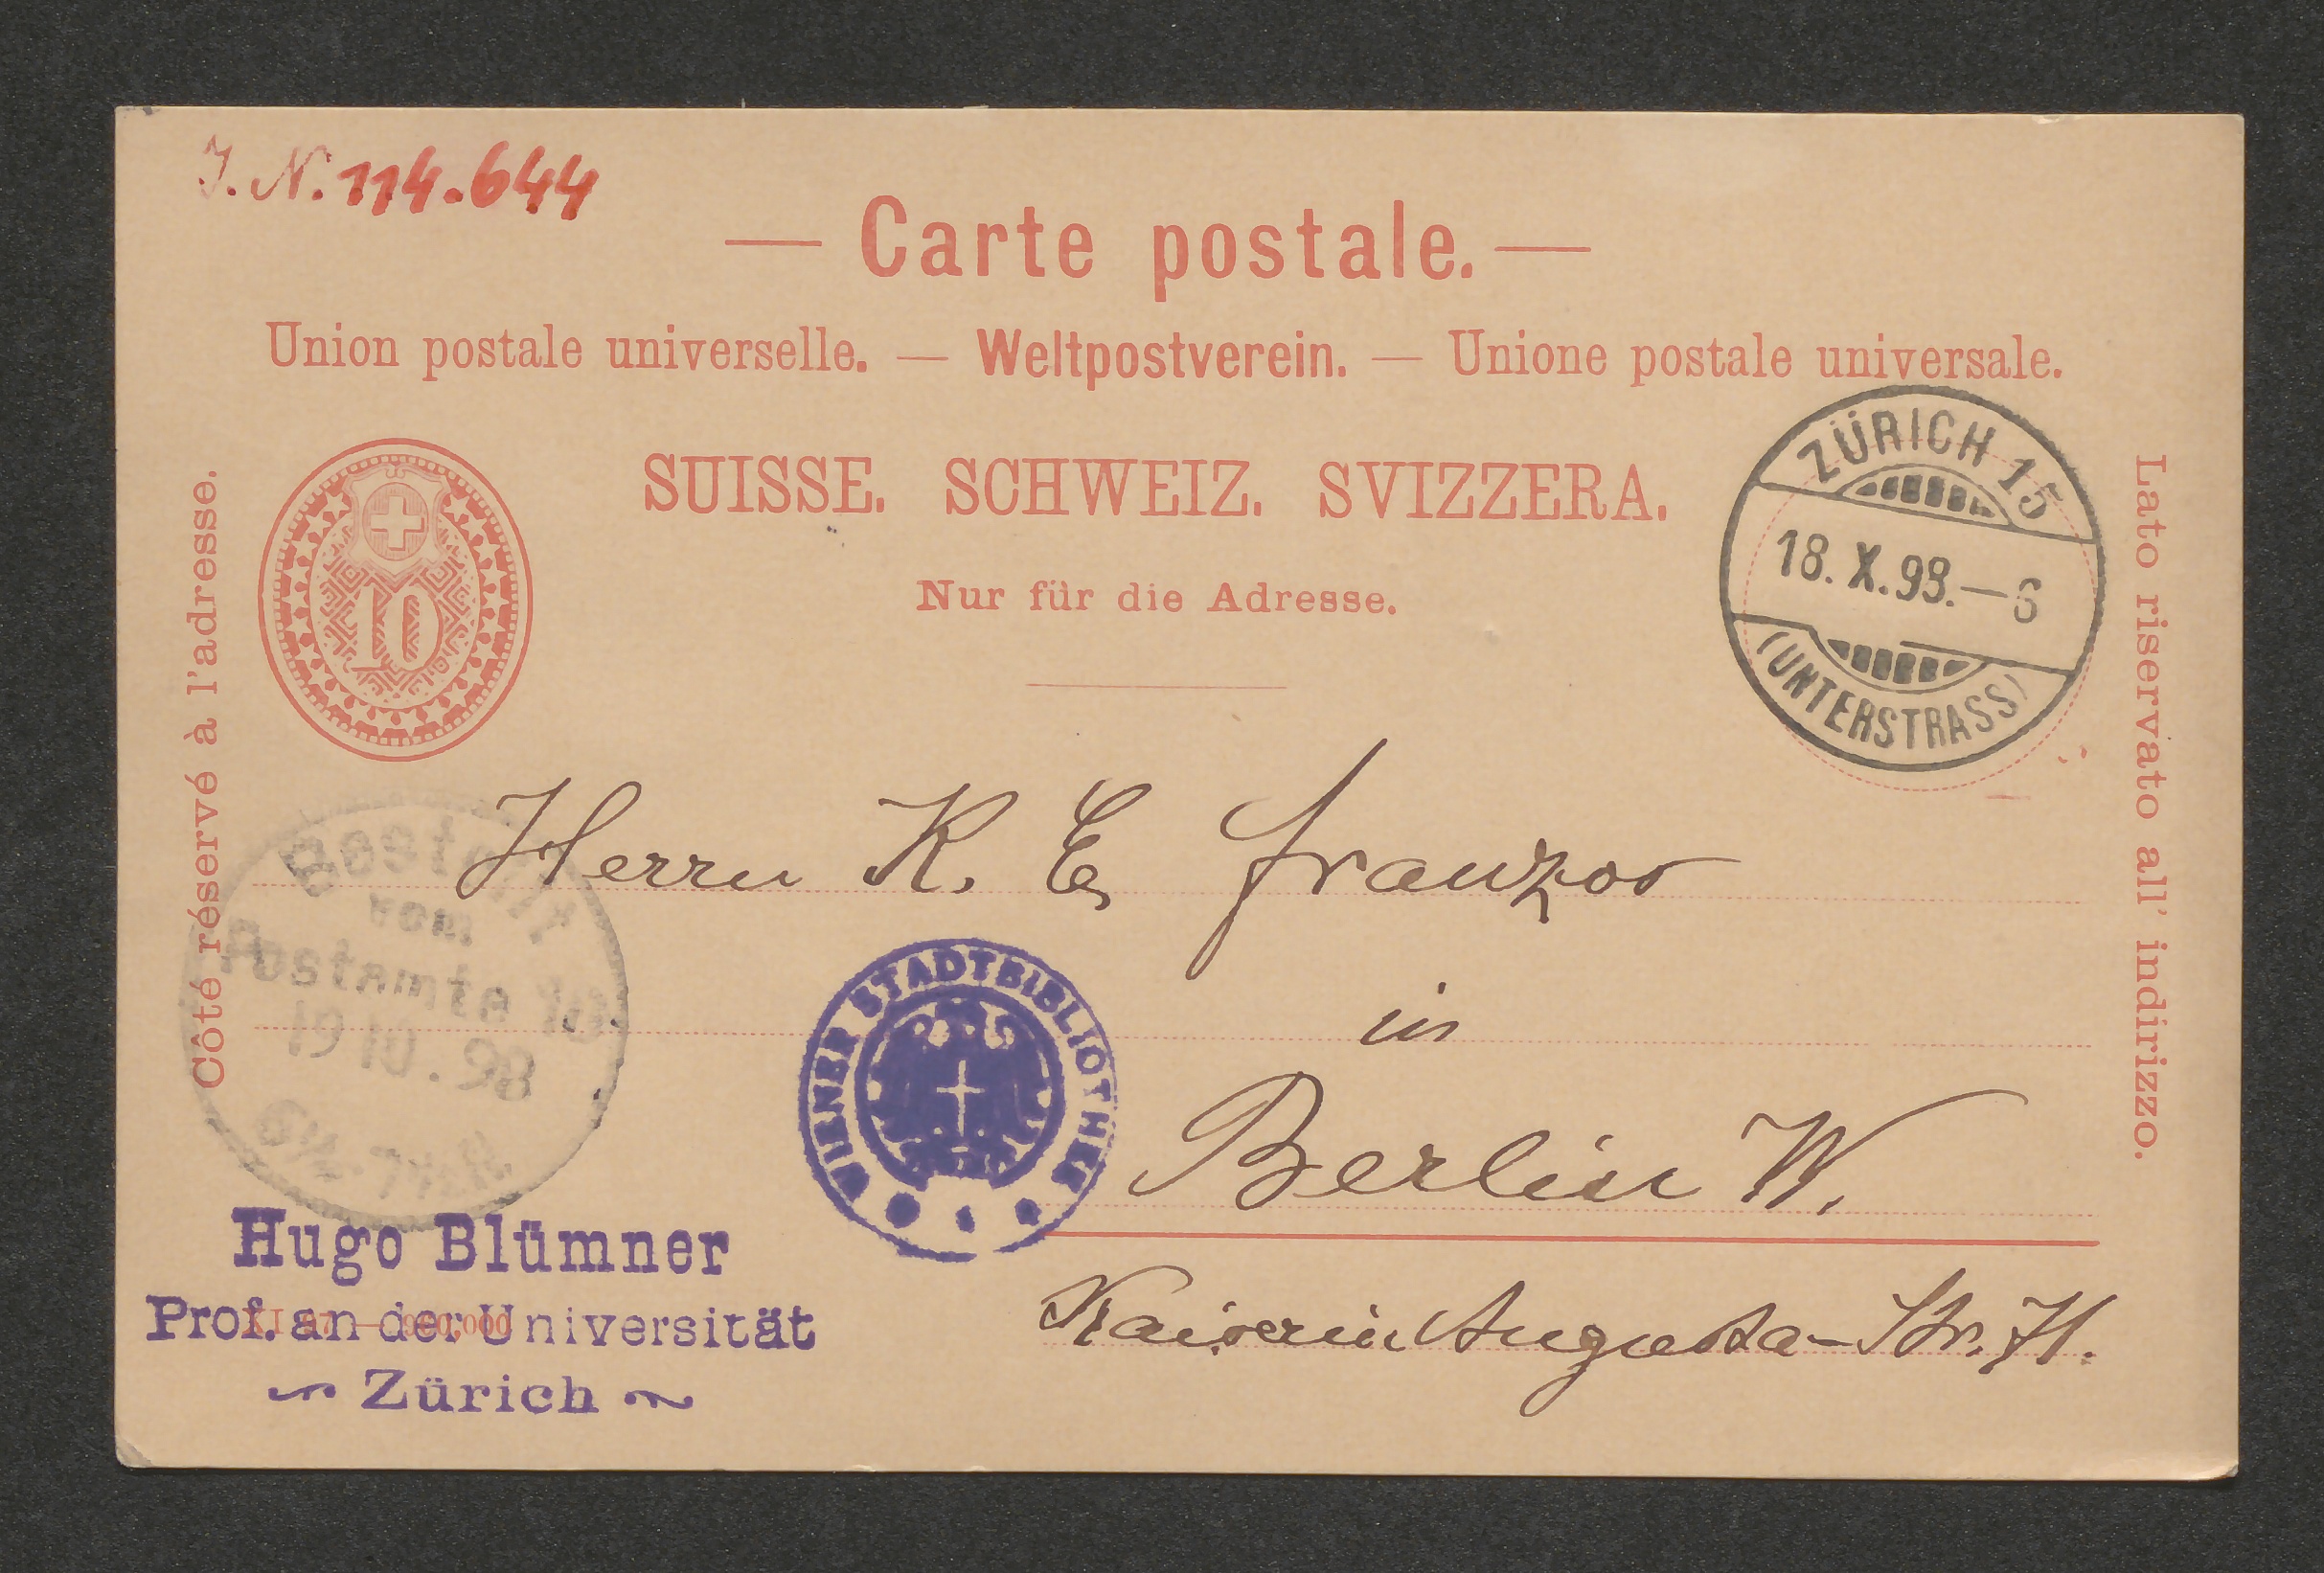 J. N. 114.644
— Carte postale. —
Union postale universelle. — Weltpostverein. — Unione postale universale.
SUISSE. SCHWEIZ. SVIZZERA.
Nur für die Adresse.
Côté réservé à l'adresse.
Lato riservato all' indirizzo.
10
ZÜRICH 15
18. X. 98. – 6
(UNTERSTRASS)
Herrn K. E. Franzos
in
Berlin W.
Kaiserin Augusta-Str. 71.
Bestellt
vom
Postamte 10
19 10. 98
WIENER STADTBIBLIOTHEK
Hugo Blümner
Prof. an der Universität
Zürich